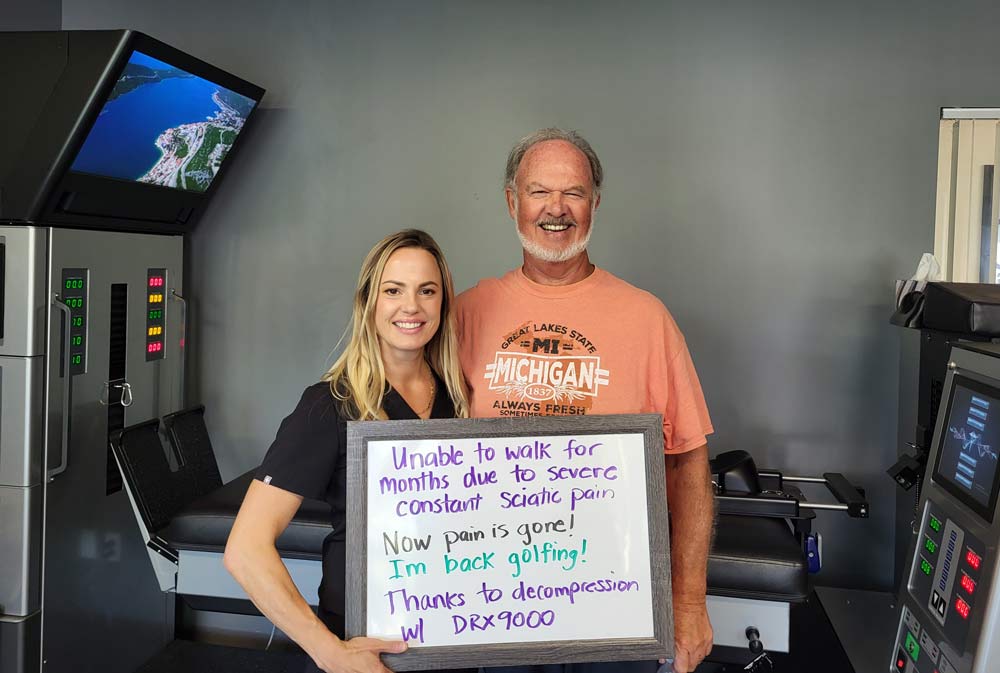 GREAT LAKES STATE
MI
MICHIGAN
1837
ALWAYS FRESH
SOMETIMES
Unable to walk for
months due to severe
constant sciatic pain
Now pain is gone!
Im back golfing!
Thanks to decompression
w/ DRX9000